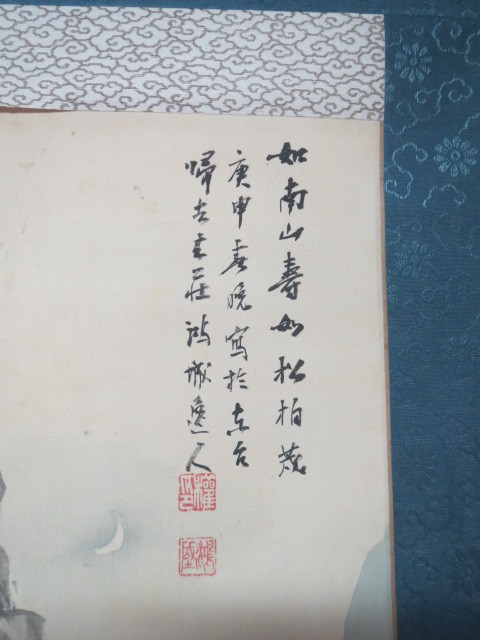 如南山壽如松柏茂
庚申春晚寫於東台
歸去来荘鴻城逸人